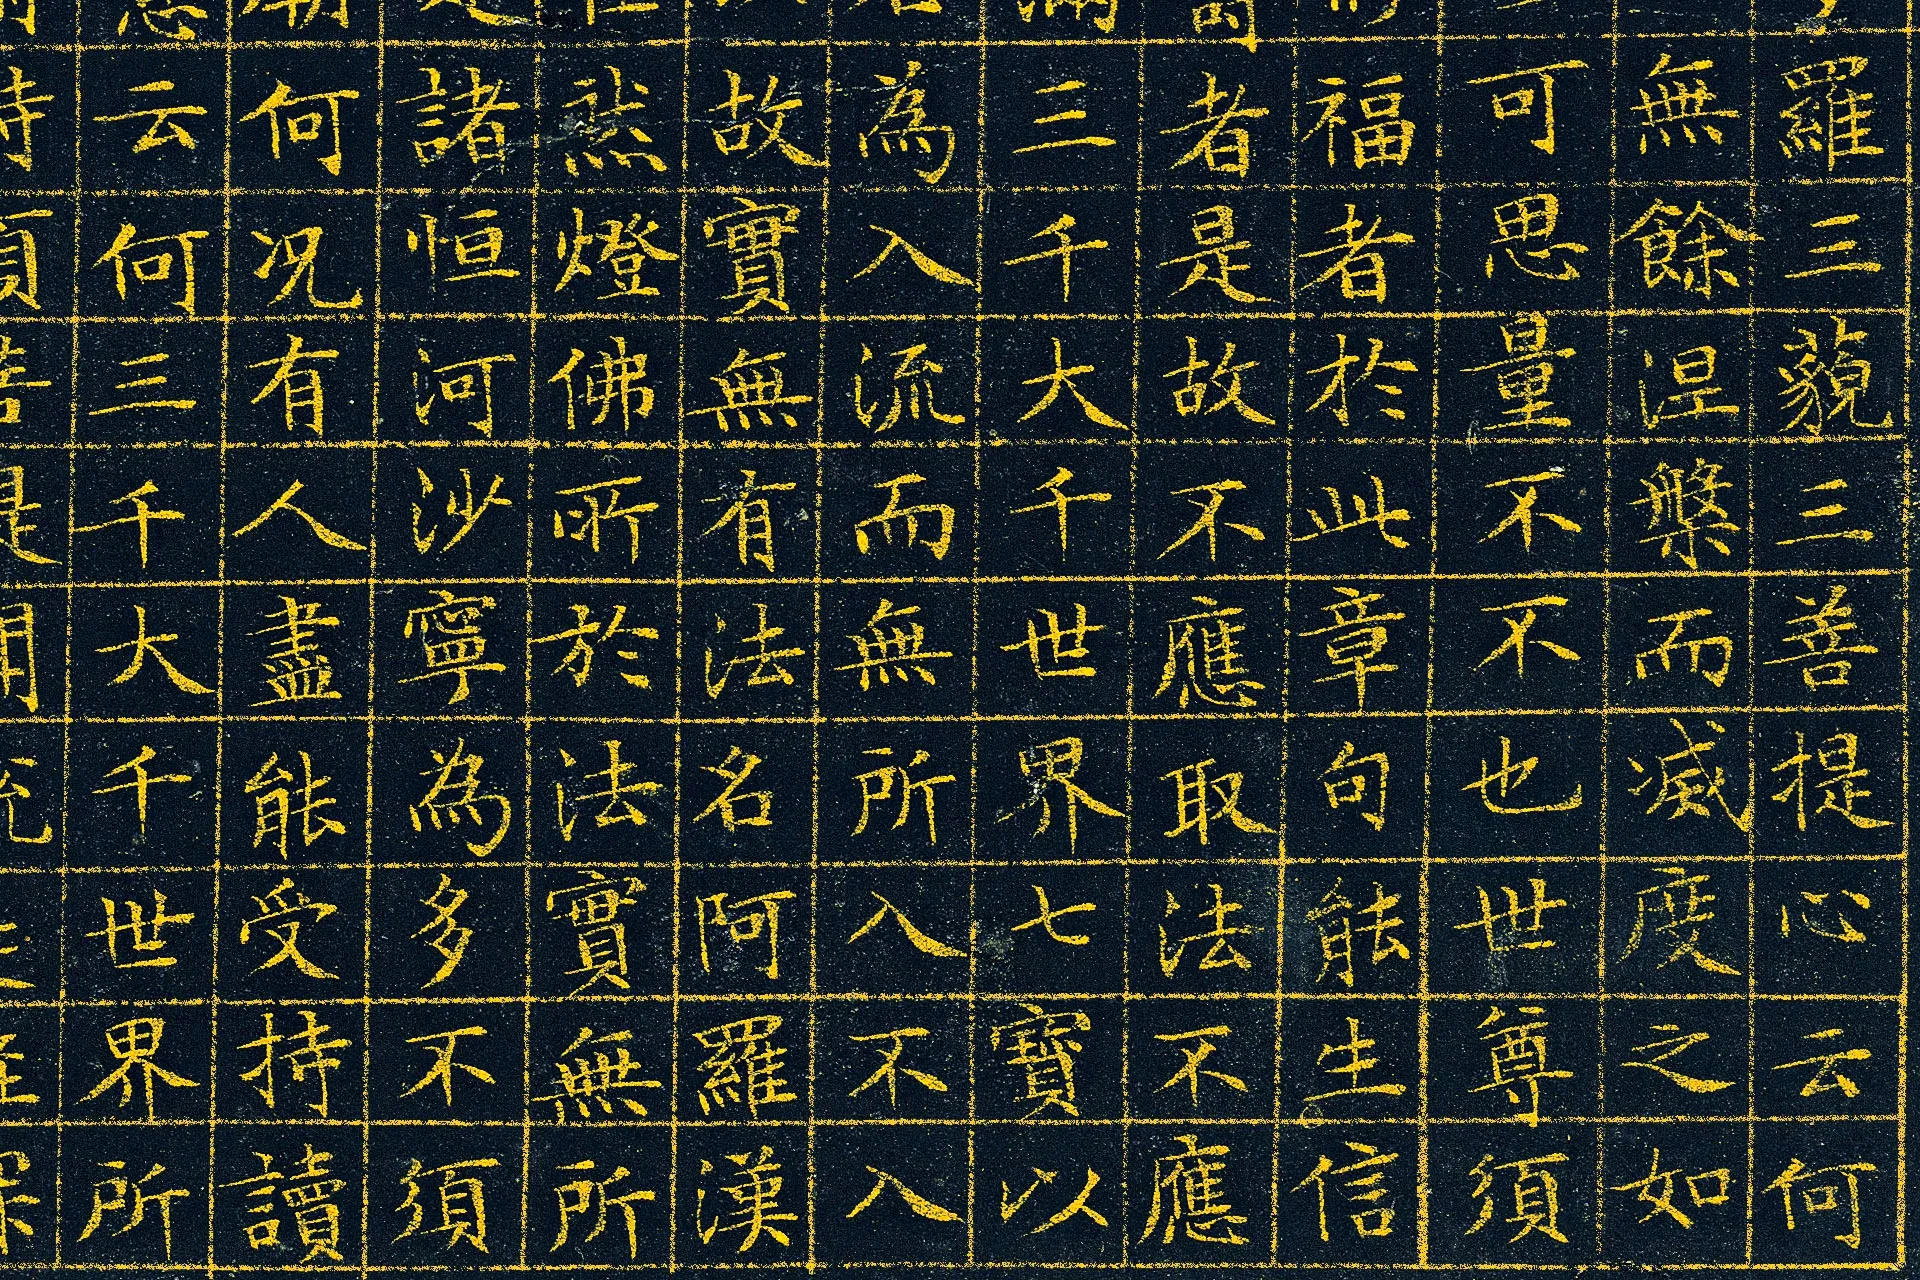 羅三藐三菩提心云何
無餘涅槃而滅度之如
可思量不不也世尊須
福者於此章句能生信
者是故不應取法不應
滿三千大千世界七寶以
為入流而無所入不入
故實無有法名阿羅漢
然燈佛所於法實無所
諸恒河沙寧為多不須
何况有人盡能受持讀
云何三千大千世界所